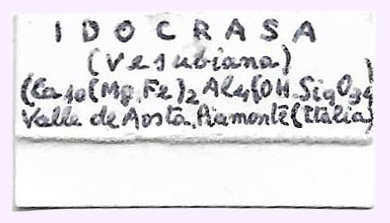 IDOCRASA
(Vesubiana)
(Ca10(Mg,Fe)2Al4(OH.Si9O34
Valle de Aosta, Piamonte (Italia)